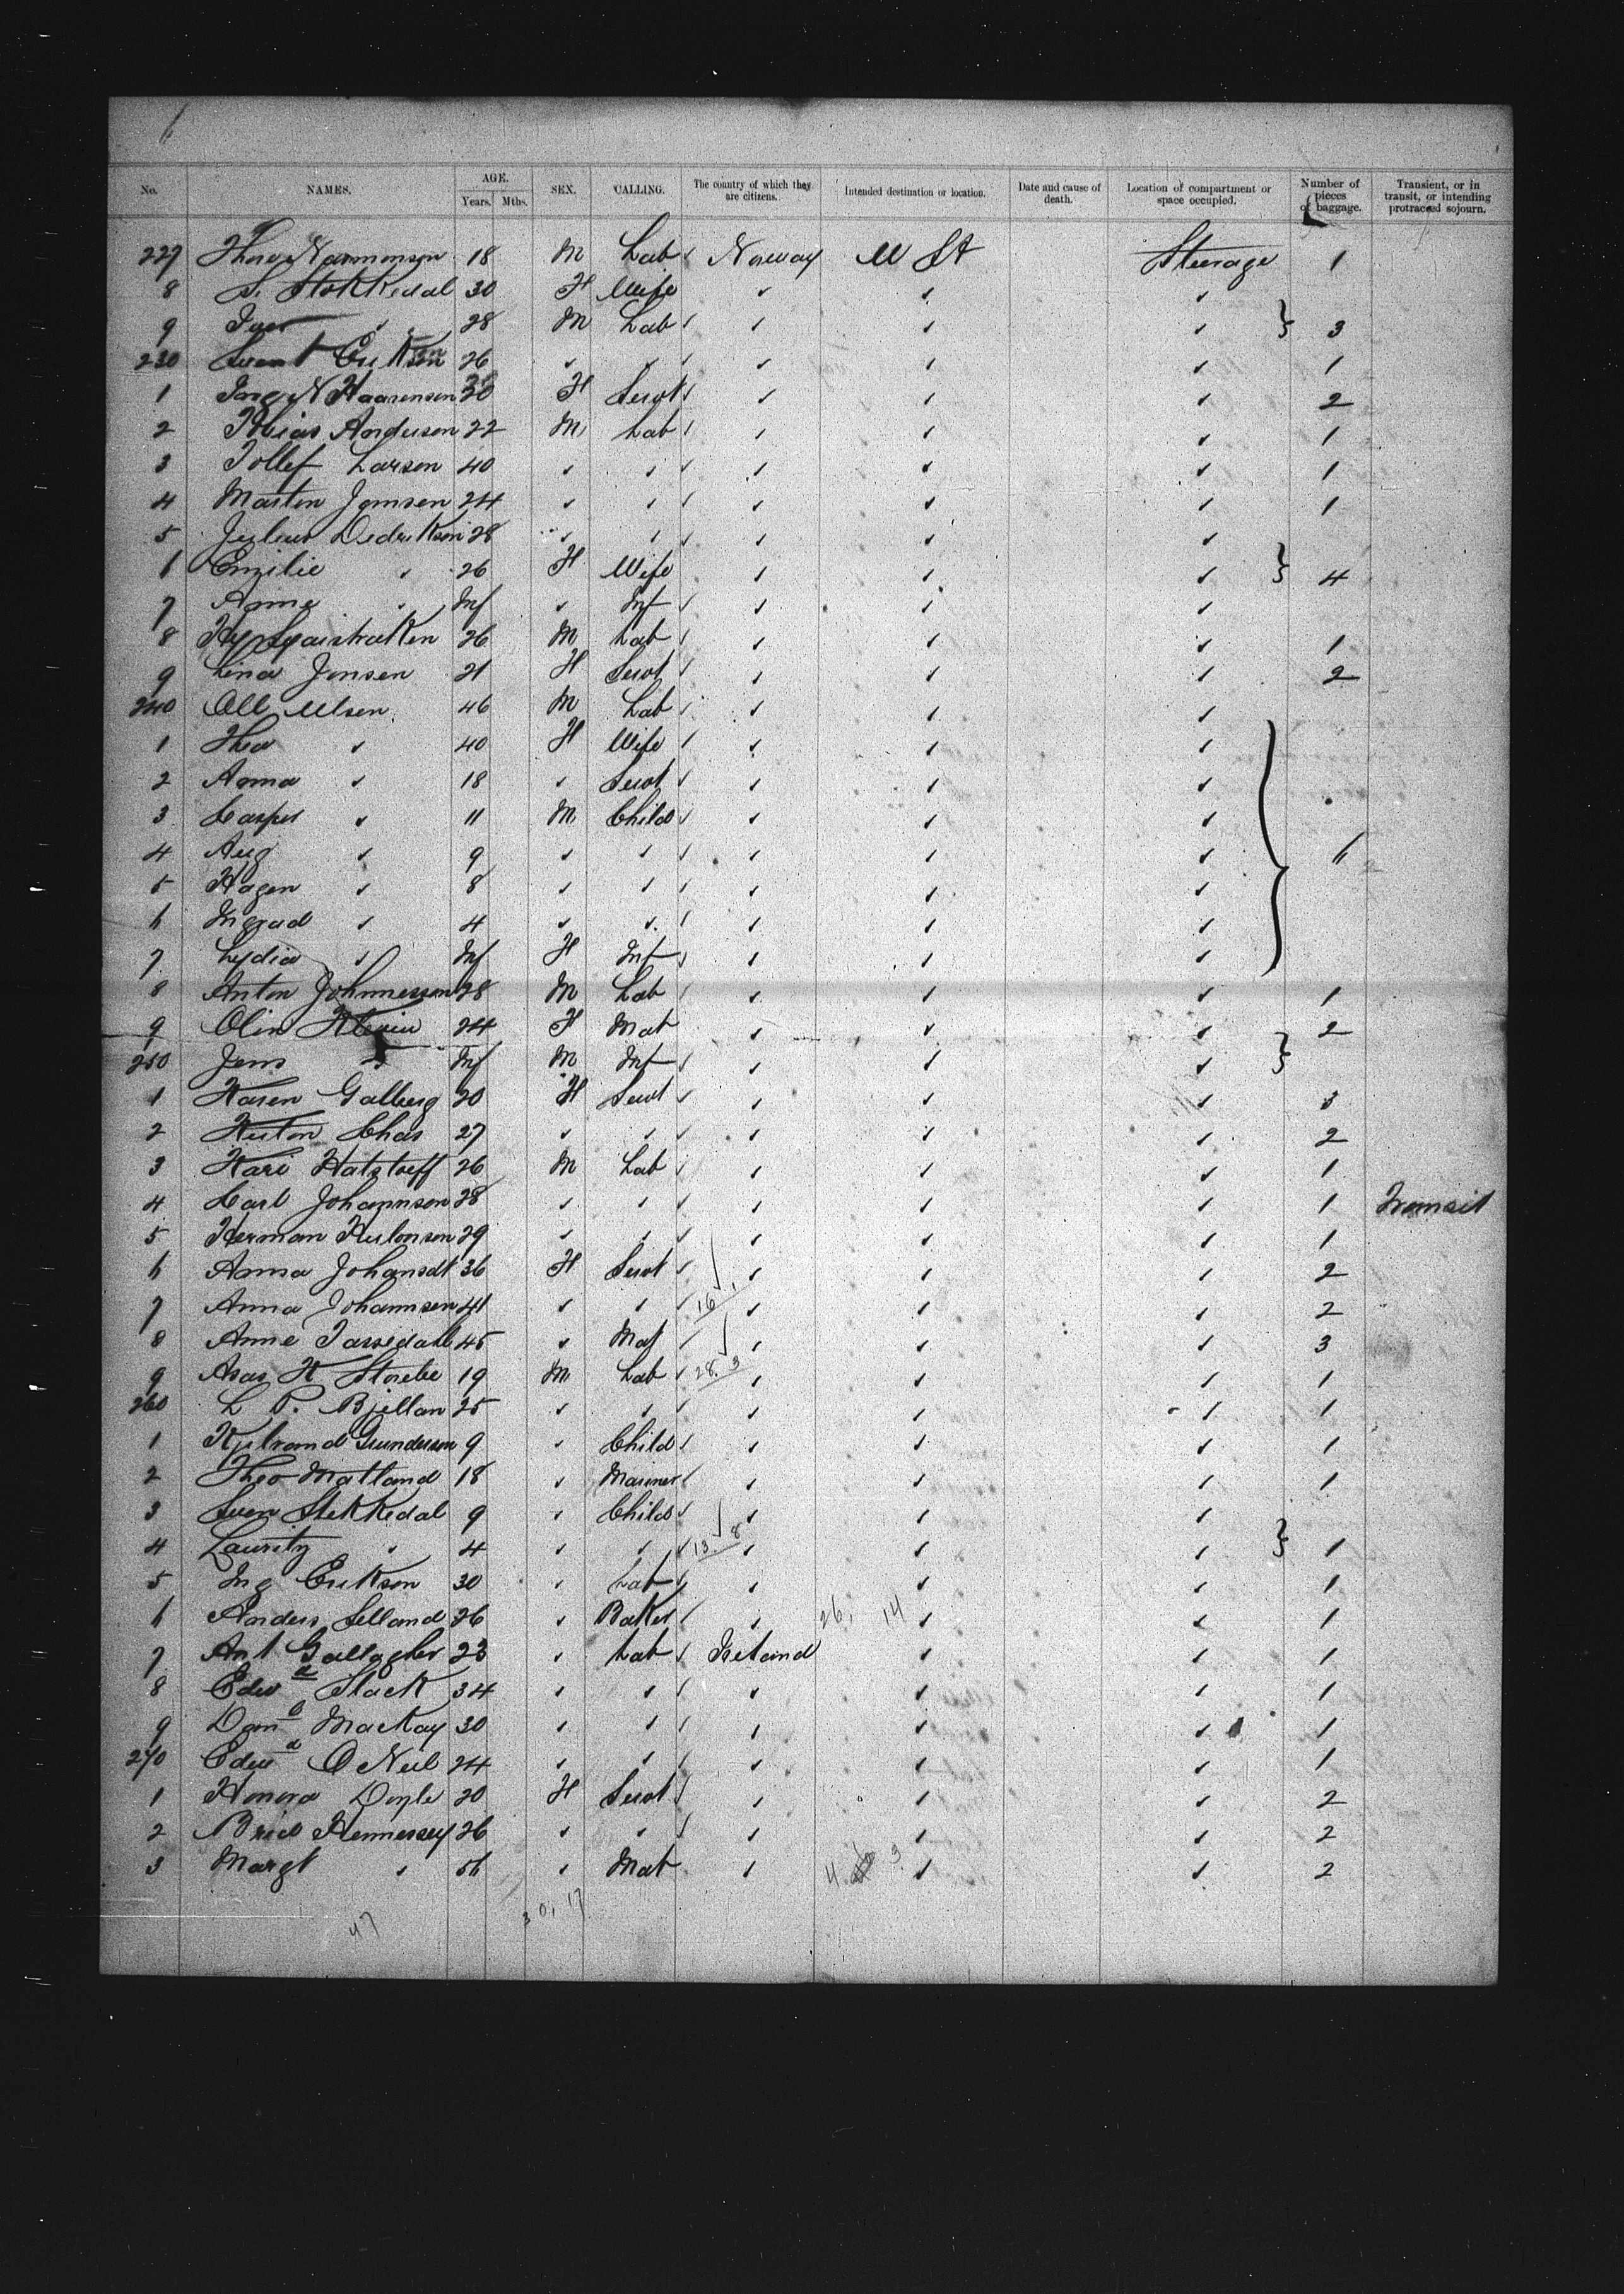 No. NAMES. AGE. Years. Mths. SEX. CALLING. The country of which they are citizens. Intended destination or location. Date and cause of death. Location of compartment or space occupied. Number of pieces of baggage. Transient, or in transit, or intending protracted sojourn.
227 18 M Lab Norway U St Steerage 1
8 S. Stokkedal 30 F Wife ✓ ✓ ✓
9 Iver ✓ 28 M Lab ✓ ✓ ✓ } 3
230 Erikson 26 ✓ ✓ ✓ ✓ ✓ 1
1 F Servt ✓ ✓ ✓ 2
2 Andersen 22 M Lab ✓ ✓ ✓ 1
3 Tollef Larsen 40 ✓ ✓ ✓ ✓ ✓ 1
4 Martin Jensen 24 ✓ ✓ ✓ ✓ ✓ 1
5 Julius Dedrikson 28 ✓ ✓ ✓ ✓ ✓
6 Emilie ✓ 26 F Wife ✓ ✓ ✓ } 4
7 Anne ✓ Inf ✓ Inf ✓ ✓ ✓
8 26 M Lab ✓ ✓ ✓ 1
9 Lina Jensen 21 F Servt ✓ ✓ ✓ 2
240 Ole Ulsen 46 M Lab ✓ ✓ ✓
1 Thea ✓ 40 F Wife ✓ ✓ ✓
2 Anna ✓ 18 ✓ Servt ✓ ✓ ✓
3 Casper ✓ 11 M Child ✓ ✓ ✓
4 Aug ✓ 9 ✓ ✓ ✓ ✓ ✓ } 6
5 Hagen ✓ 8 ✓ ✓ ✓ ✓ ✓
6 Ingrad ✓ 4 ✓ ✓ ✓ ✓ ✓
7 Lydia ✓ Inf F Inf ✓ ✓ ✓
8 Anton Johnnessen 28 M Lab ✓ ✓ ✓ 1
9 Olin 24 F Mat ✓ ✓ ✓ 2
250 Jens ✓ Inf M Inf ✓ ✓ ✓ }
1 Karen Galberg 20 F Servt ✓ ✓ ✓ 3
2 Chas 27 ✓ ✓ ✓ ✓ ✓ 2
3 Kari 26 M Lab ✓ ✓ ✓ 1
4 Carl Johannson 28 ✓ ✓ ✓ ✓ ✓ 1 Transit
5 Herman 29 ✓ ✓ ✓ ✓ ✓ 1
6 Anna Johansdt 36 F Servt ✓ ✓ ✓ 2
7 Anna Johannsen 41 ✓ ✓ 16 1 ✓ ✓ ✓ 2
8 Anne Tassedahl 45 ✓ Mat ✓ ✓ ✓ 3
9 Asas K 19 M Lab 28. 3 ✓ ✓ ✓ 1
260 L P. Bjellan 25 ✓ ✓ ✓ ✓ ✓ 1
1 Gunderson 9 ✓ Child ✓ ✓ ✓ 1
2 Theo Matland 18 ✓ Mariner ✓ ✓ ✓ 1
3 Sven Stokkedal 9 ✓ Child ✓ ✓ ✓
4 Lauritz ✓ 4 ✓ ✓ 13. 8 ✓ ✓ ✓ } 1
5 Ing Erikson 30 ✓ Lab ✓ ✓ ✓ 1
6 Anders Selland 26 ✓ Baker ✓ 26, 14 ✓ ✓ 1
7 Ant Gallagher 23 ✓ Lab Ireland ✓ ✓ 1
8 Edwd Slack 34 ✓ ✓ ✓ ✓ ✓ 1
9 Danl MacKay 30 ✓ ✓ ✓ ✓ ✓ 1
270 Edwd O Neil 24 ✓ ✓ ✓ ✓ ✓ 1
1 Honora Doyle 20 F Servt ✓ ✓ ✓ 2
2 Brid Hennessey 26 ✓ ✓ ✓ ✓ ✓ 2
3 Margt ✓ 56 ✓ Mat ✓ 4 3 ✓ ✓ 2
47 30, 17